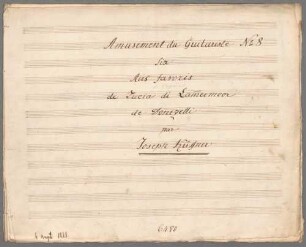 Amusement du Guitariste No 8
Six
Airs favoris
de Lucia di Lammermoor
de Donizetti
par
Joseph Küffner
6180